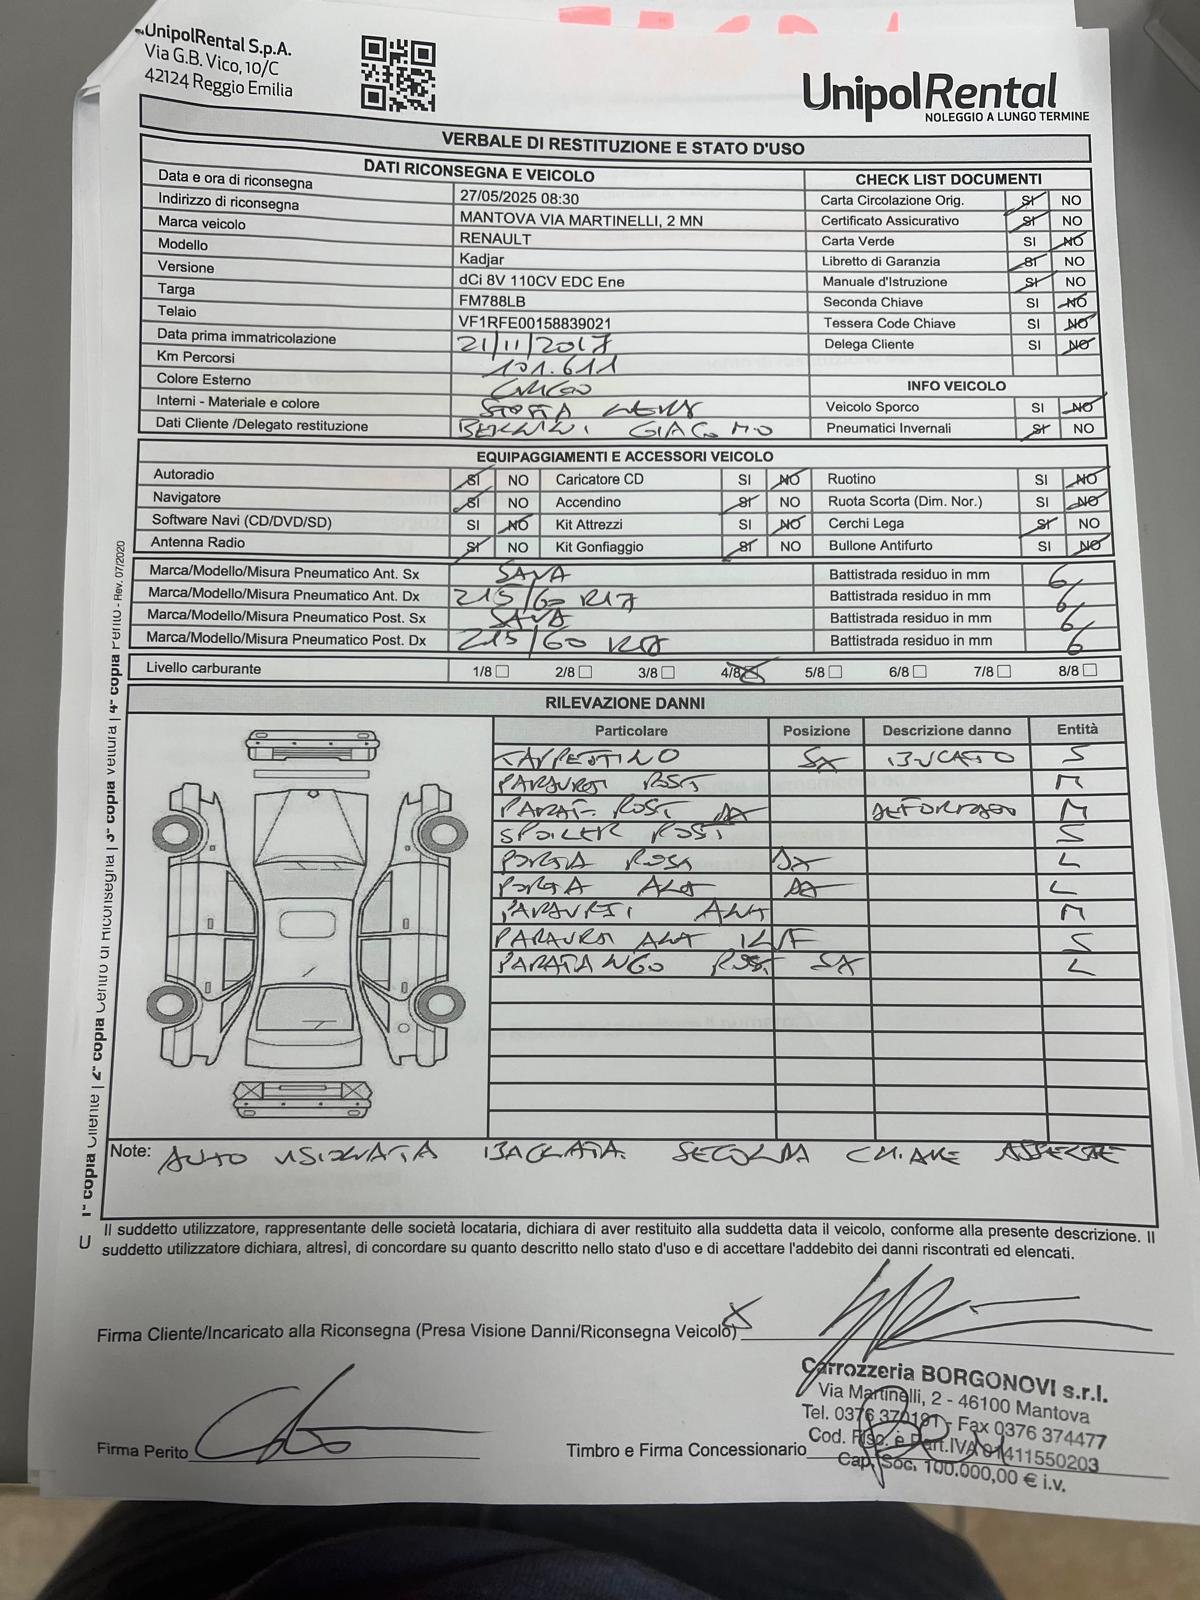 UnipolRental S.p.A.
Via G.B. Vico, 10/C
42124 Reggio Emilia
UnipolRental
NOLEGGIO A LUNGO TERMINE
VERBALE DI RESTITUZIONE E STATO D'USO
DATI RICONSEGNA E VEICOLO CHECK LIST DOCUMENTI
Data e ora di riconsegna 27/05/2025 08:30 Carta Circolazione Orig. SI NO
Indirizzo di riconsegna MANTOVA VIA MARTINELLI, 2 MN Certificato Assicurativo SI NO
Marca veicolo RENAULT Carta Verde SI NO
Modello Kadjar Libretto di Garanzia SI NO
Versione dCi 8V 110CV EDC Ene Manuale d'Istruzione SI NO
Targa FM788LB Seconda Chiave SI NO
Telaio VF1RFE00158839021 Tessera Code Chiave SI NO
Data prima immatricolazione 21/11/2017 Delega Cliente SI NO
Km Percorsi 101.611
Colore Esterno INFO VEICOLO
Interni - Materiale e colore STOFFA Veicolo Sporco SI NO
Dati Cliente /Delegato restituzione GIACOMO Pneumatici Invernali SI NO
EQUIPAGGIAMENTI E ACCESSORI VEICOLO
Autoradio SI NO Caricatore CD SI NO Ruotino SI NO
Navigatore SI NO Accendino SI NO Ruota Scorta (Dim. Nor.) SI NO
Software Navi (CD/DVD/SD) SI NO Kit Attrezzi SI NO Cerchi Lega SI NO
Antenna Radio SI NO Kit Gonfiaggio SI NO Bullone Antifurto SI NO
Marca/Modello/Misura Pneumatico Ant. Sx SAVA Battistrada residuo in mm 6
Marca/Modello/Misura Pneumatico Ant. Dx 215/60 R17 Battistrada residuo in mm 6
Marca/Modello/Misura Pneumatico Post. Sx SAVA Battistrada residuo in mm 6
Marca/Modello/Misura Pneumatico Post. Dx 215/60 R17 Battistrada residuo in mm 6
Livello carburante 1/8 2/8 3/8 4/8 5/8 6/8 7/8 8/8
RILEVAZIONE DANNI
Particolare Posizione Descrizione danno Entità
TAPPETINO SX BUCATO S
PARAURTI POST M
PARAF. POST DX DEFORMATO M
SPOILER POST S
PORTA POST DX L
PORTA ANT DX L
PARAURTI ANT M
PARAURTI ANT INF S
PARAFANGO POST SX L
Note: AUTO VISIONATA BAGNATA. SECONDA CHIAVE ASSENTE
Il suddetto utilizzatore, rappresentante delle società locataria, dichiara di aver restituito alla suddetta data il veicolo, conforme alla presente descrizione. Il
suddetto utilizzatore dichiara, altresì, di concordare su quanto descritto nello stato d'uso e di accettare l'addebito dei danni riscontrati ed elencati.
Firma Cliente/Incaricato alla Riconsegna (Presa Visione Danni/Riconsegna Veicolo) X
Carrozzeria BORGONOVI s.r.l.
Via Martinelli, 2 - 46100 Mantova
Tel. 0376 370191 - Fax 0376 374477
Cod. Fisc. e Part.IVA 01411550203
Cap. Soc. 100.000,00 € i.v.
Firma Perito Timbro e Firma Concessionario
U 1ª copia Cliente | 2ª copia Centro di Riconsegna | 3ª copia Vettura | 4ª copia Perito - Rev. 07/2020